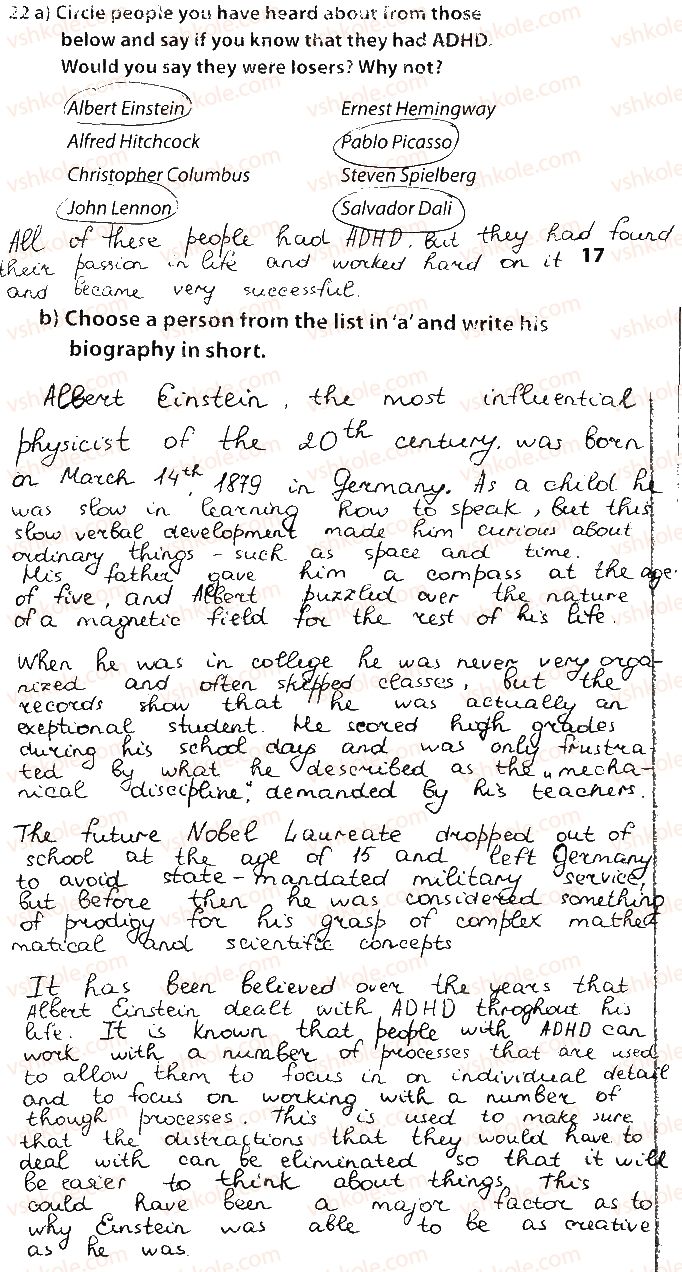 22 a) Circle people you have heard about from those
below and say if you know that they had ADHD.
Would you say they were losers? Why not?
Albert Einstein Ernest Hemingway
Alfred Hitchcock Pablo Picasso
Christopher Columbus Steven Spielberg
John Lennon Salvador Dali
All of these people had ADHD. But they had found
their passion in life and worked hard on it 17
and became very successful.
b) Choose a person from the list in 'a' and write his
biography in short.
Albert Einstein, the most influential
physicist of the 20th century, was born
on March 14th, 1879 in Germany. As a child he
was slow in learning how to speak, but this
slow verbal development made him curious about
ordinary things - such as space and time.
His father gave him a compass at the age
of five, and Albert puzzled over the nature
of a magnetic field for the rest of his life.
When he was in college he was never very orga-
nized and often skipped classes, but the
records show that he was actually an
exeptional student. He scored high grades
during his school days and was only frustra-
ted by what he described as the „mecha-
nical discipline," demanded by his teachers.
The future Nobel Laureate dropped out of
school at the age of 15 and left Germany
to avoid state-mandated military service,
but before then he was considered something
of prodigy for his grasp of complex mathe
matical and scientific concepts
It has been believed over the years that
Albert Einstein dealt with ADHD throghout his
life. It is known that people with ADHD can
work with a number of processes that are used
to allow them to focus in on individual detail
and to focus on working with a number of
though processes. This is used to make sure
that the distractions that they would have to
deal with can be eliminated so that it will
be easier to think about things. This
could have been a major factor as to
why Einstein was able to be as creative
as he was.